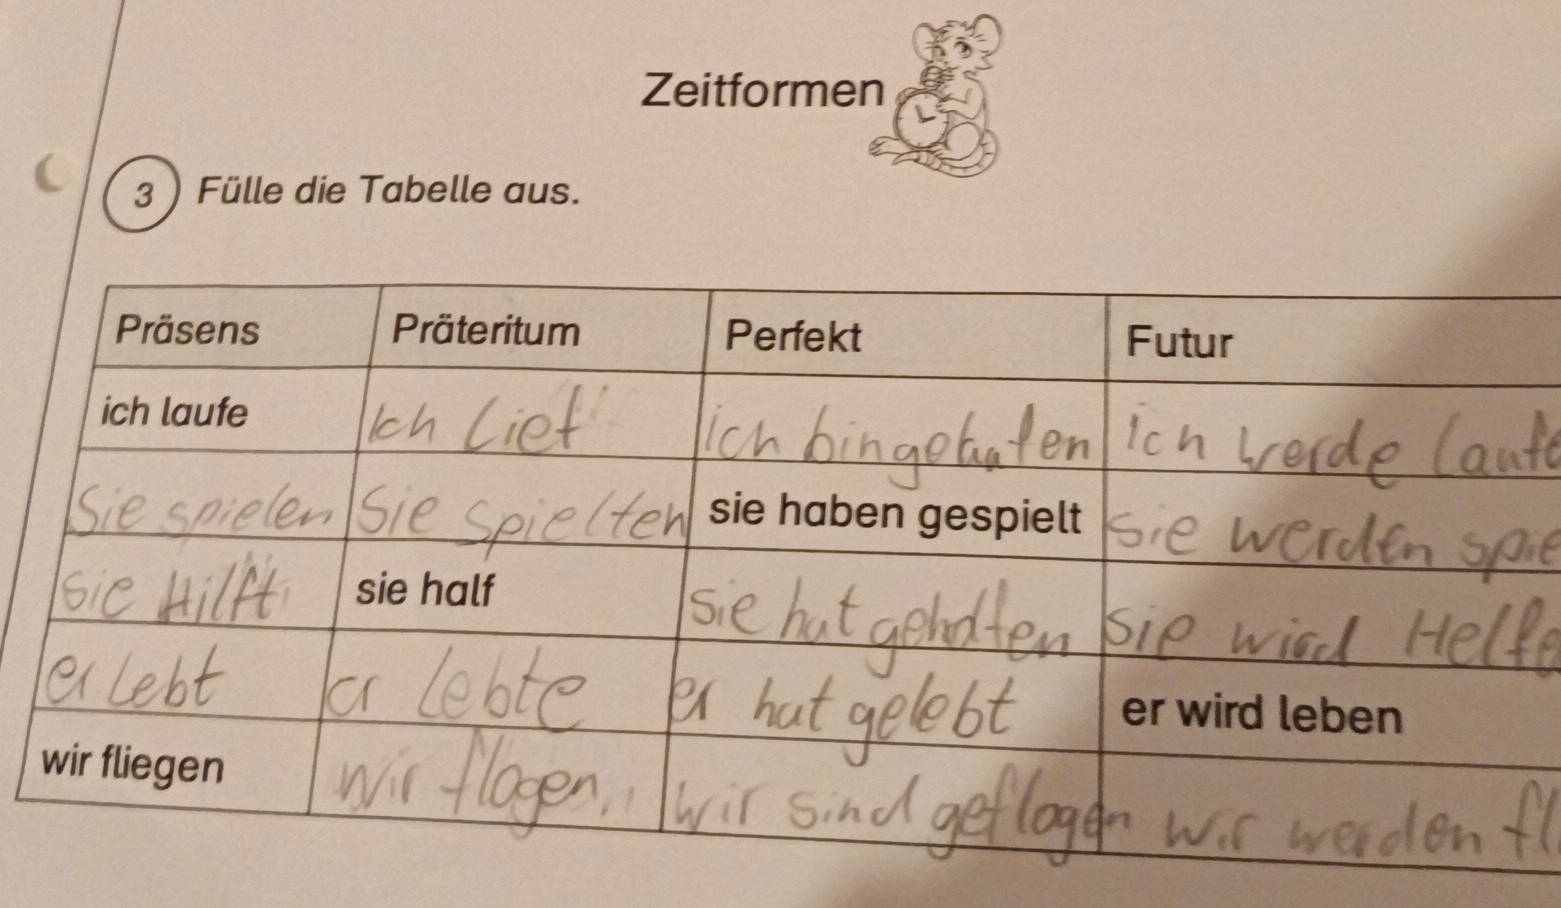 Zeitformen
3 Fülle die Tabelle aus.
Präsens Präteritum Perfekt Futur
ich laufe Ich Lief ich bin gelaufen ich werde laufe
Sie spielen Sie spielten sie haben gespielt Sie werden spie
Sie Hilft sie half Sie hat geholfen Sie wird Helfe
er Lebt er Lebte er hat gelebt er wird leben
wir fliegen Wir flogen. Wir sind geflogen wir werden fl